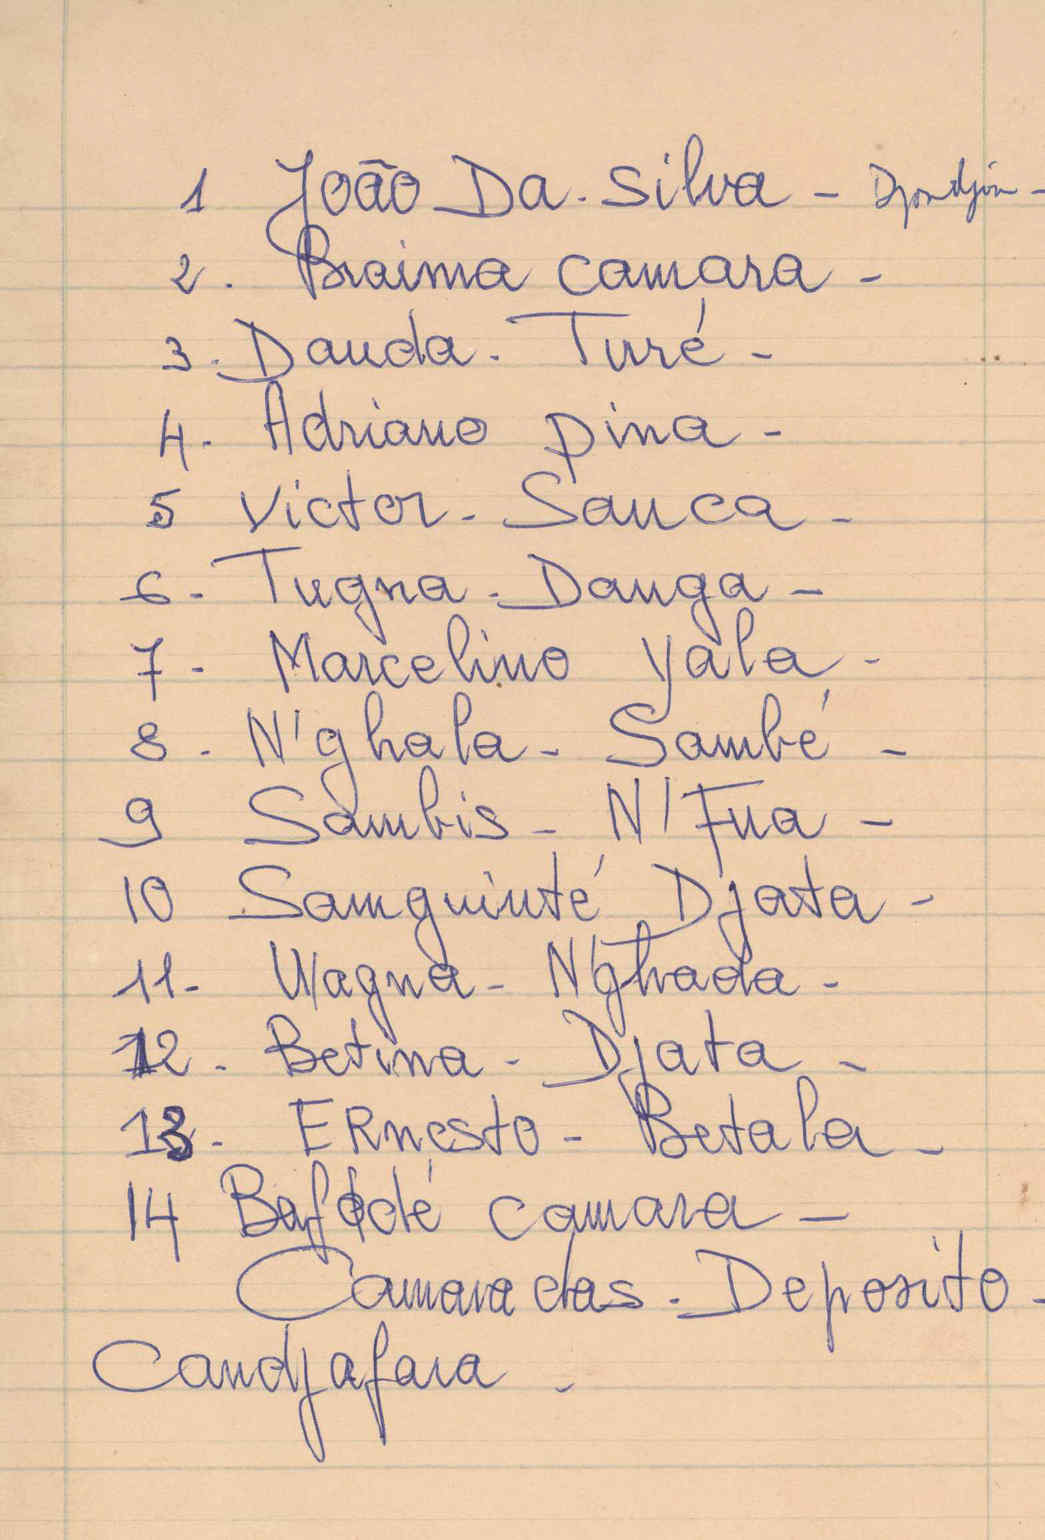 1 João Da. Silva - Djondjon -
2. Braima camara -
3. Dauda. Turé -
4. Adriano pina -
5 Victor. Sanca -
6. Tugna. Danga -
7. Marcelino yala -
8. N'ghala - Sambé -
9 Sambis - N'Fua -
10 Samguinté Djata -
11. Wagna - N'Ghada -
12. Betina - Djata -
13. ERnesto - Betala -
14 Bafodé camara -
Camaradas. Deposito -
Candjafara -